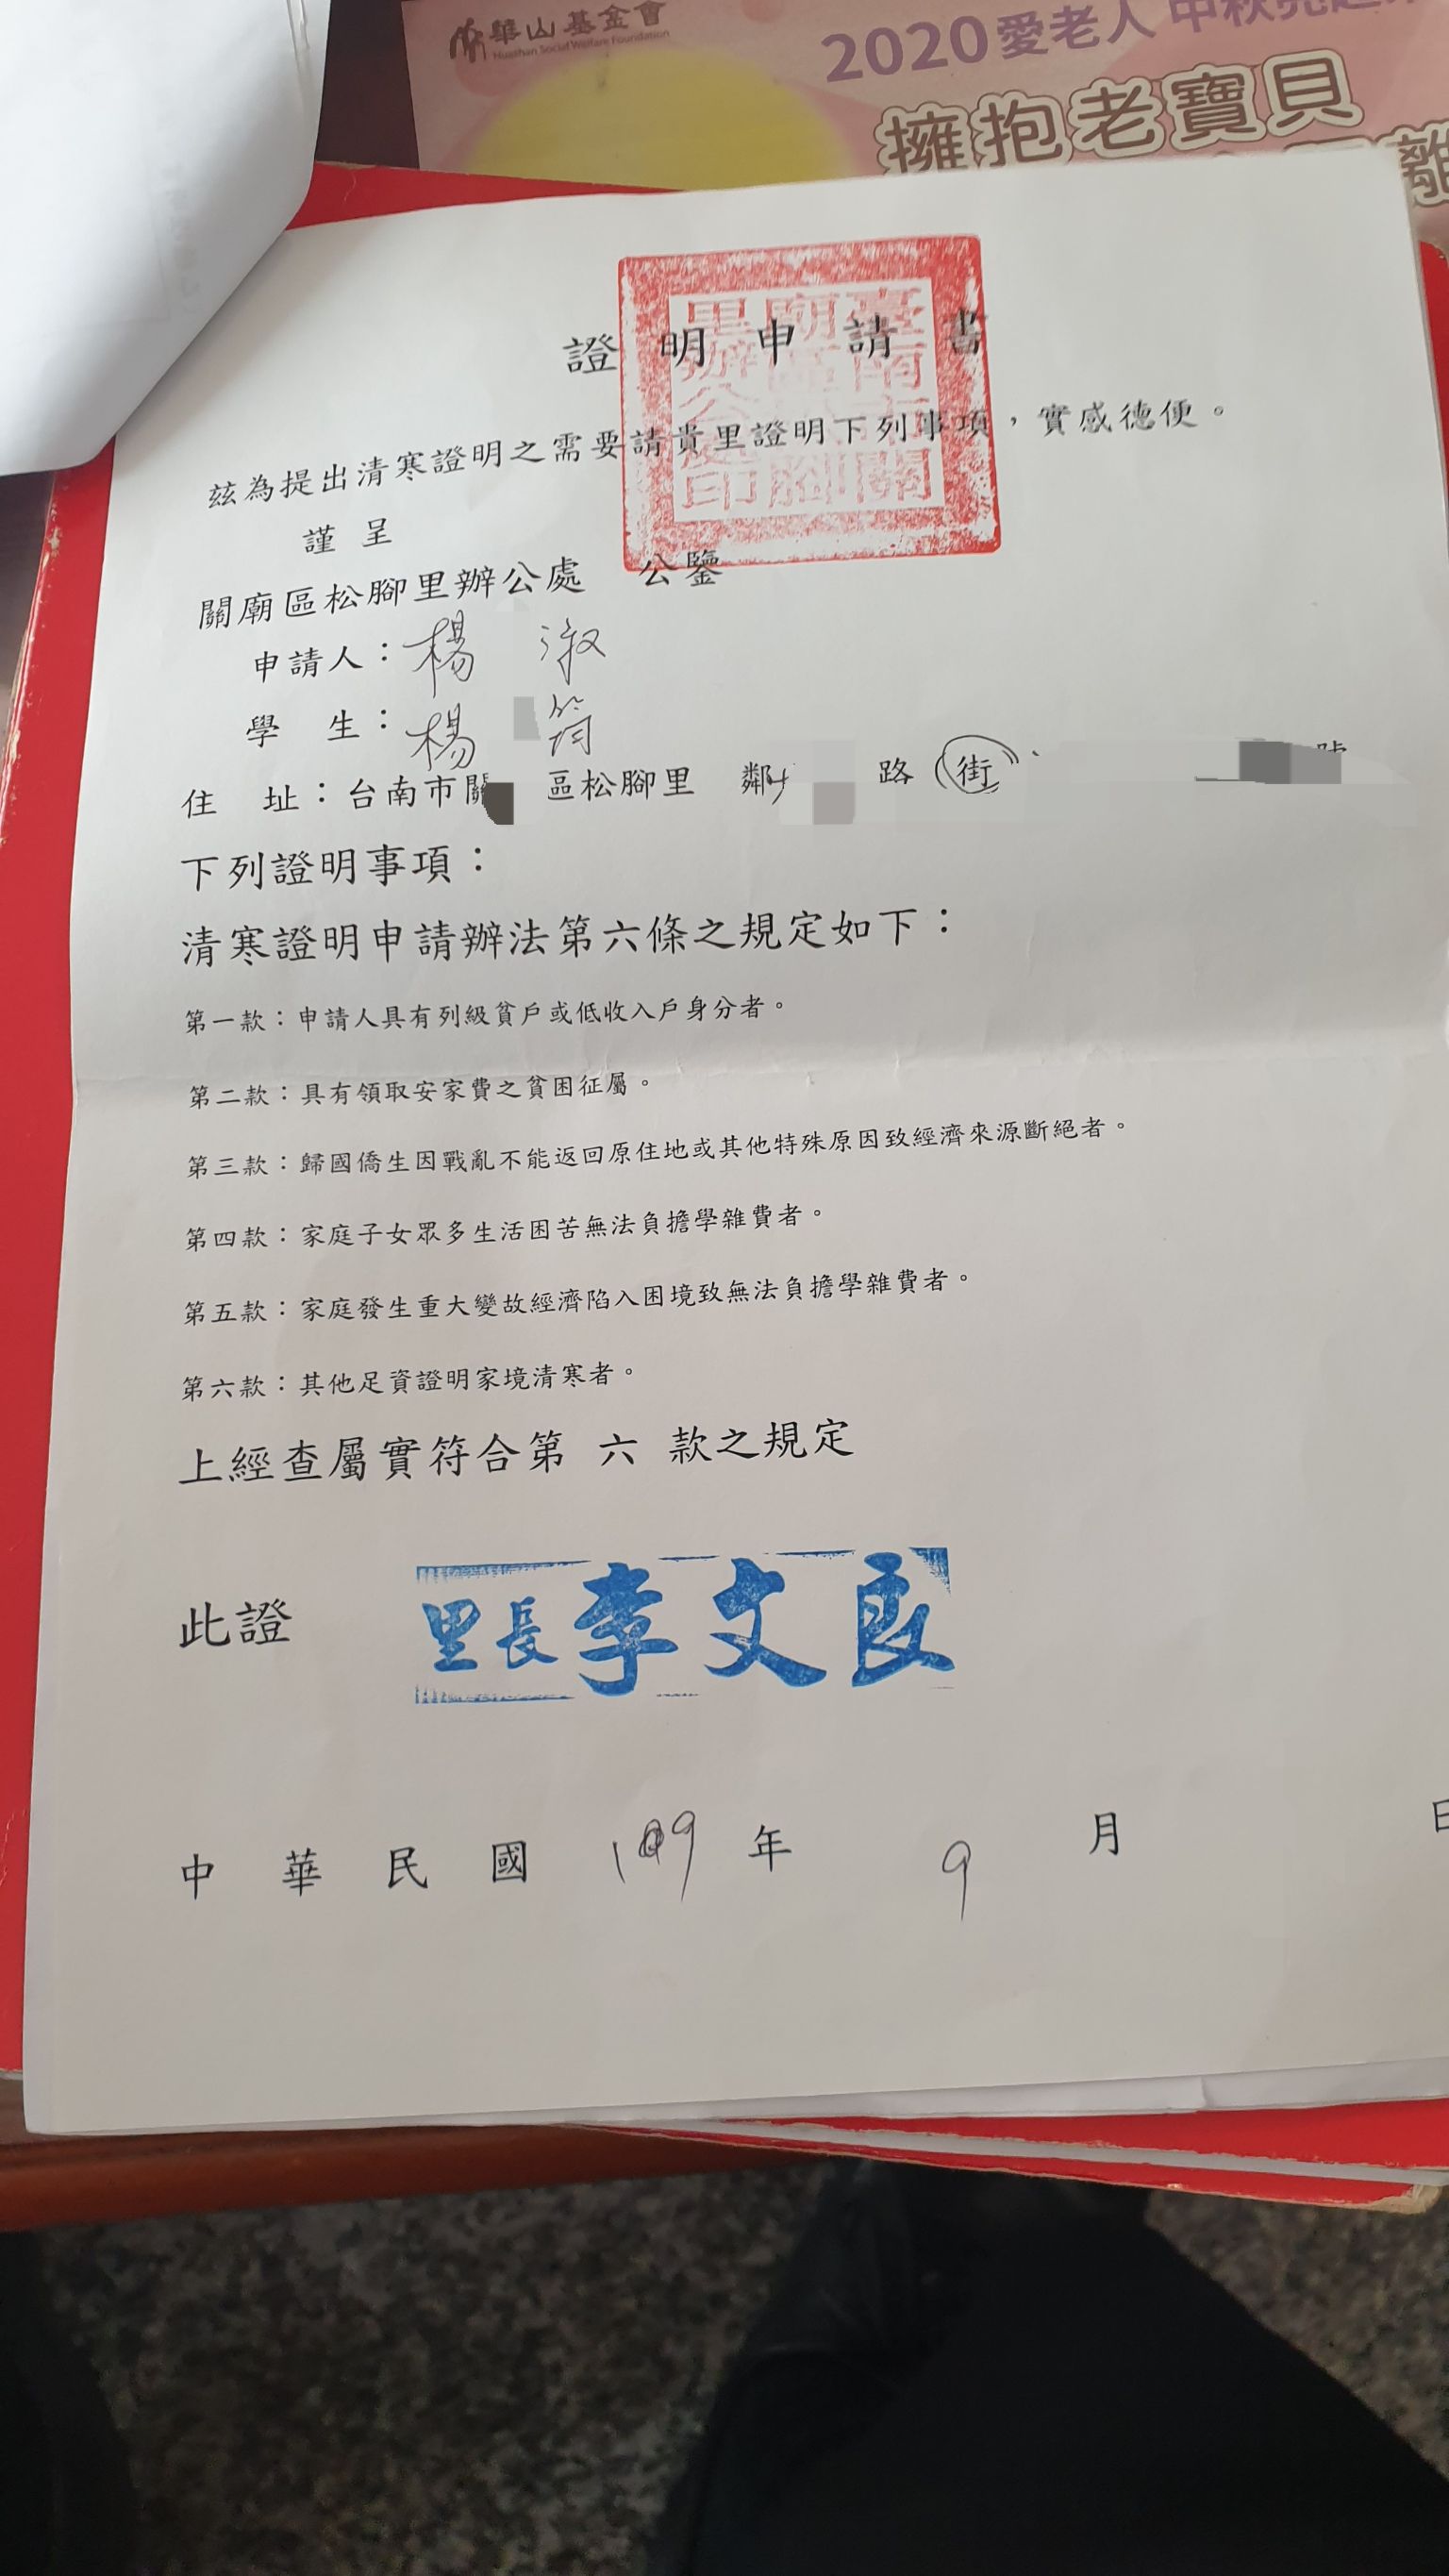 華山基金會
Huashan Social Welfare Foundation
2020愛老人 中秋
擁抱老寶貝
離
證明申請書
茲為提出清寒證明之需要請貴里證明下列事項，實感德便。
謹呈
關廟區松腳里辦公處 公鑒
申請人：楊 淑
學 生：楊 筠
住 址：台南市關 區松腳里 鄰 路 街 號
下列證明事項：
清寒證明申請辦法第六條之規定如下：
第一款：申請人具有列級貧戶或低收入戶身分者。
第二款：具有領取安家費之貧困征屬。
第三款：歸國僑生因戰亂不能返回原住地或其他特殊原因致經濟來源斷絕者。
第四款：家庭子女眾多生活困苦無法負擔學雜費者。
第五款：家庭發生重大變故經濟陷入困境致無法負擔學雜費者。
第六款：其他足資證明家境清寒者。
上經查屬實符合第 六 款之規定
此證 里長李文良
中華民國 109 年 9 月 日